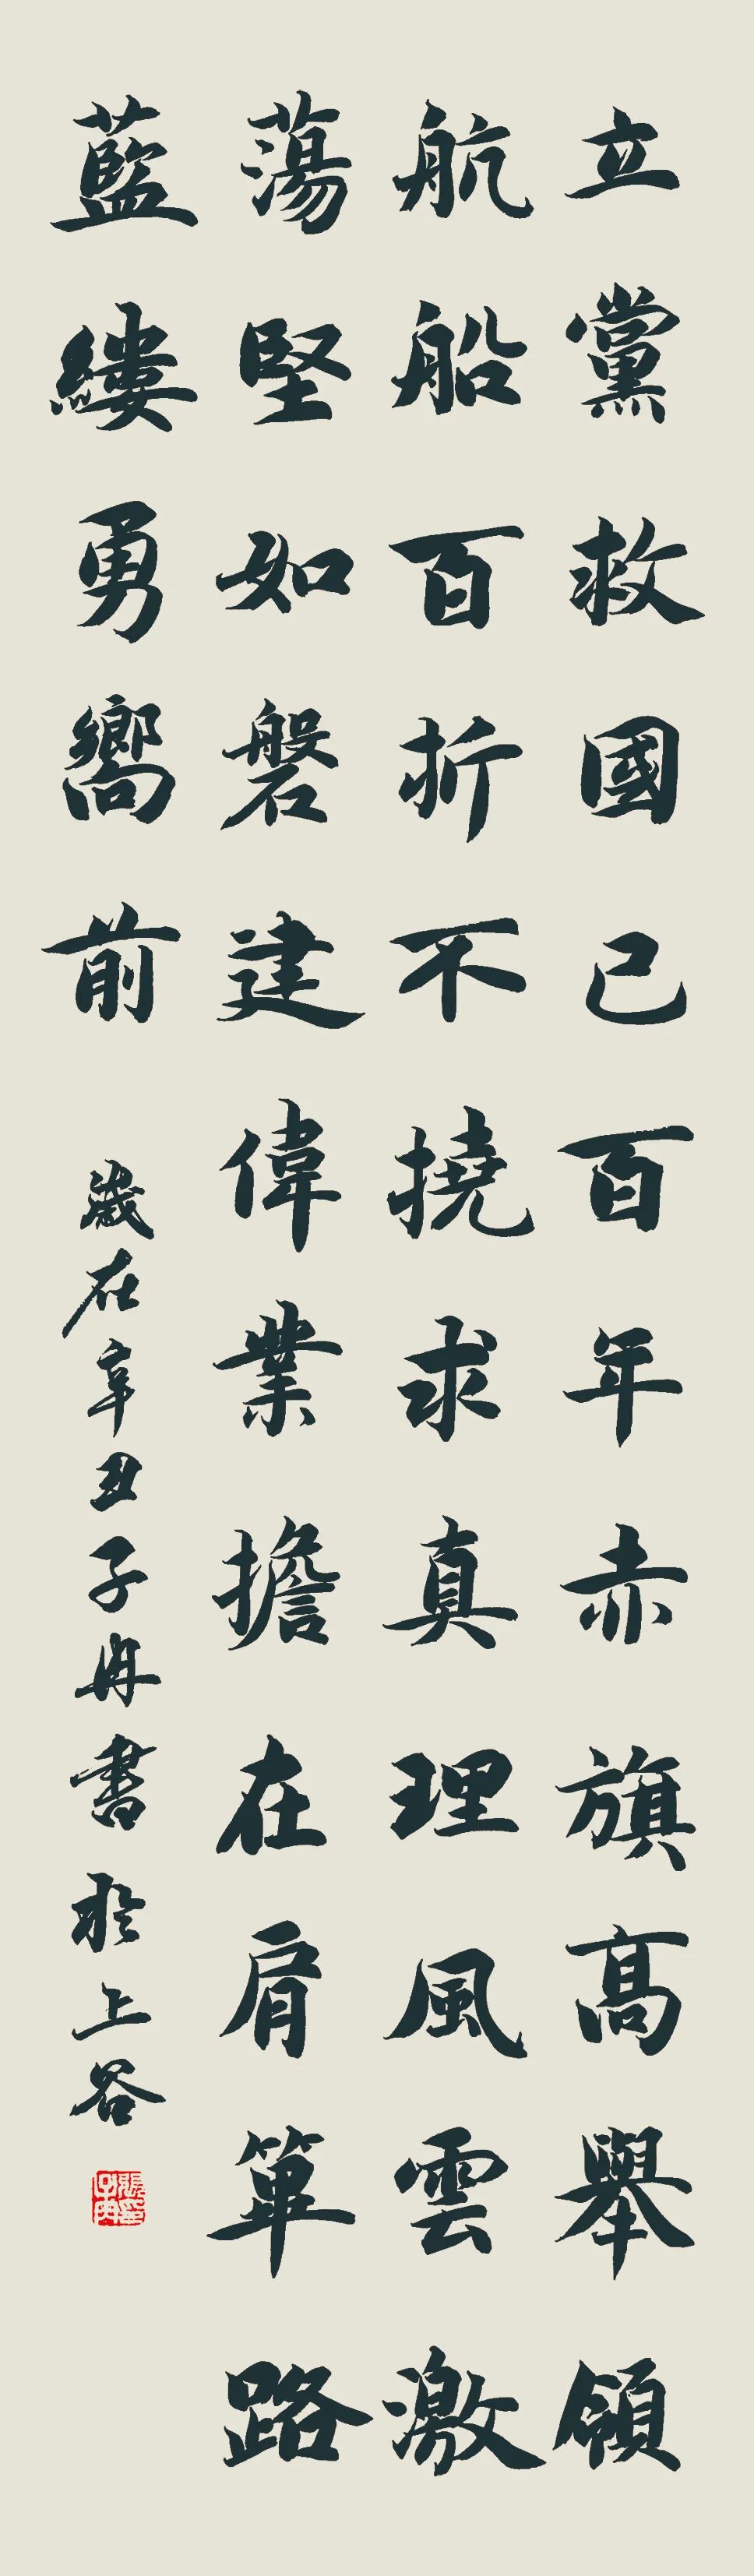 立黨救國已百年赤旗高舉領
航船百折不撓求真理風雲激
蕩堅如磐建偉業擔在肩篳路
藍縷勇嚮前
歲在辛丑子冉書於上谷
張子冉印